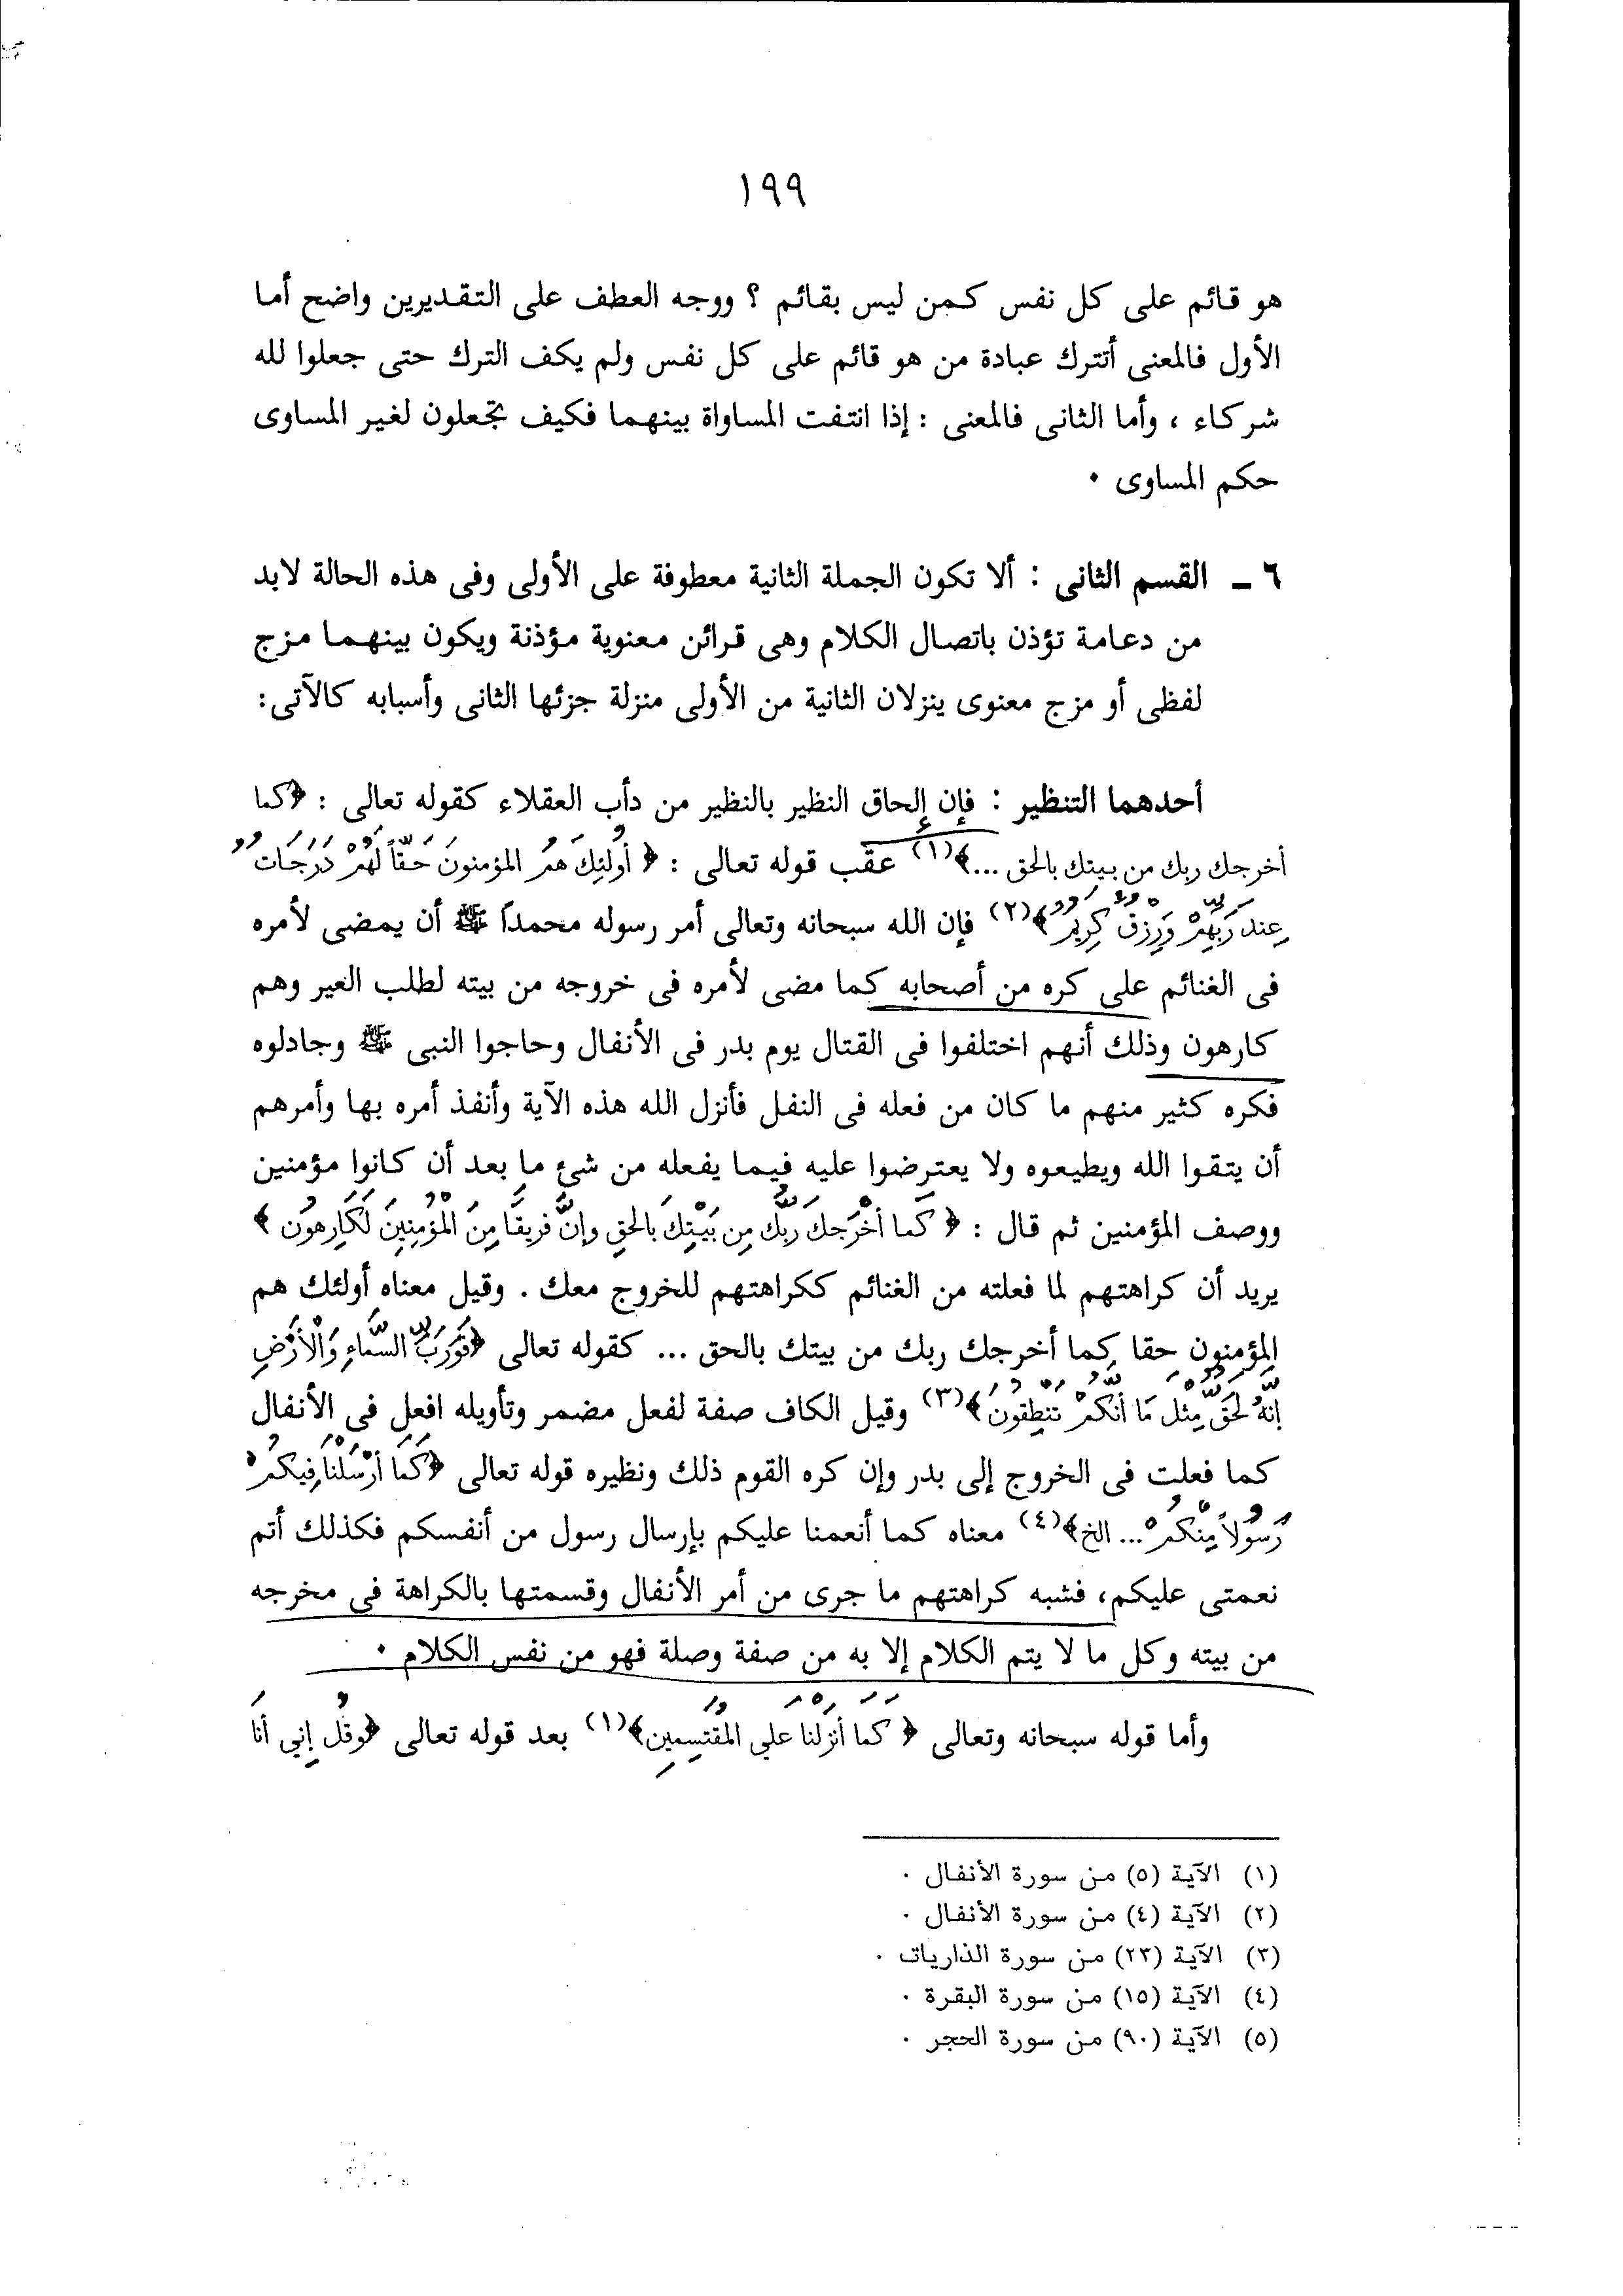 ١٩٩
هو قائم على كل نفس كمن ليس بقائم ؟ ووجه العطف على التقديرين واضح أما
الأول فالمعنى أتترك عبادة من هو قائم على كل نفس ولم يكف الترك حتى جعلوا لله
شركاء ، وأما الثانى فالمعنى : إذا انتفت المساواة بينهما فكيف تجعلون لغير المساوى
حكم المساوى ٠
٦ ـ القسم الثانى : ألا تكون الجملة الثانية معطوفة على الأولى وفى هذه الحالة لابد
من دعامة تؤذن باتصال الكلام وهى قرائن معنوية مؤذنة ويكون بينهما مزج
لفظى أو مزج معنوى ينزلان الثانية من الأولى منزلة جزئها الثانى وأسبابه كالآتى:
أحدهما التنظير : فإن إلحاق النظير بالنظير من دأب العقلاء كقوله تعالى : ﴿كما
أخرجك ربك من بيتك بالحق ...﴾(١) عقب قوله تعالى : ﴿ أُولئِكَ هُمُ المؤمنونَ حَقّاً لَهُمْ دَرَجَاتٌ
عِندَ رَبِّهِمْ وَرِزْقٌ كَرِيمٌ﴾(٢) فإن الله سبحانه وتعالى أمر رسوله محمداً ﷺ أن يمضى لأمره
فى الغنائم على كره من أصحابه كما مضى لأمره فى خروجه من بيته لطلب العير وهم
كارهون وذلك أنهم اختلفوا فى القتال يوم بدر فى الأنفال وحاجوا النبى ﷺ وجادلوه
فكره كثير منهم ما كان من فعله فى النفل فأنزل الله هذه الآية وأنفذ أمره بها وأمرهم
أن يتقوا الله ويطيعوه ولا يعترضوا عليه فيما يفعله من شئ ما بعد أن كانوا مؤمنين
ووصف المؤمنين ثم قال : ﴿ كَما أَخْرَجكَ رَبُّكَ مِن بَيْتِكَ بالحقِ وإنَّ فريقًا مِنَ الْمُؤْمِنِينَ لَكَارِهُون ﴾
يريد أن كراهتهم لما فعلته من الغنائم ككراهتهم للخروج معك . وقيل معناه أولئك هم
المؤمنون حقا كما أخرجك ربك من بيتك بالحق ... كقوله تعالى ﴿فَوَرَبِّ السَّماءِ وَالْأَرْضِ
إِنَّهُ لَحَقٌّ مِثْلَ مَا أَنَّكُمْ تَنْطِقُونَ﴾(٣) وقيل الكاف صفة لفعل مضمر وتأويله افعل فى الأنفال
كما فعلت فى الخروج إلى بدر وإن كره القوم ذلك ونظيره قوله تعالى ﴿كَمَا أَرْسَلْنَا فِيكُمْ
رَسُولاً مِنْكُمْ ... الخ﴾(٤) معناه كما أنعمنا عليكم بإرسال رسول من أنفسكم فكذلك أتم
نعمتى عليكم، فشبه كراهتهم ما جرى من أمر الأنفال وقسمتها بالكراهة فى مخرجه
من بيته وكل ما لا يتم الكلام إلا به من صفة وصلة فهو من نفس الكلام ٠
وأما قوله سبحانه وتعالى ﴿ كَمَا أَنْزَلنَا عَلَى المُقْتَسِمِين﴾(١) بعد قوله تعالى ﴿وقُل إِني أَنَا
(١) الآية (٥) من سورة الأنفال ٠
(٢) الآية (٤) من سورة الأنفال ٠
(٣) الآية (٢٣) من سورة الذاريات ٠
(٤) الآية (١٥) من سورة البقرة ٠
(٥) الآية (٩٠) من سورة الحجر ٠